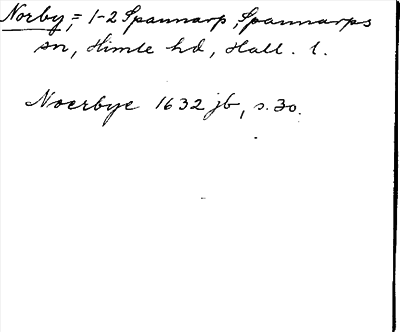 Norby, = 1-2 Spannarp, Spannarps
sn, Himle hd, Hall. l.
Noerbye 1632 jb, s. 30.